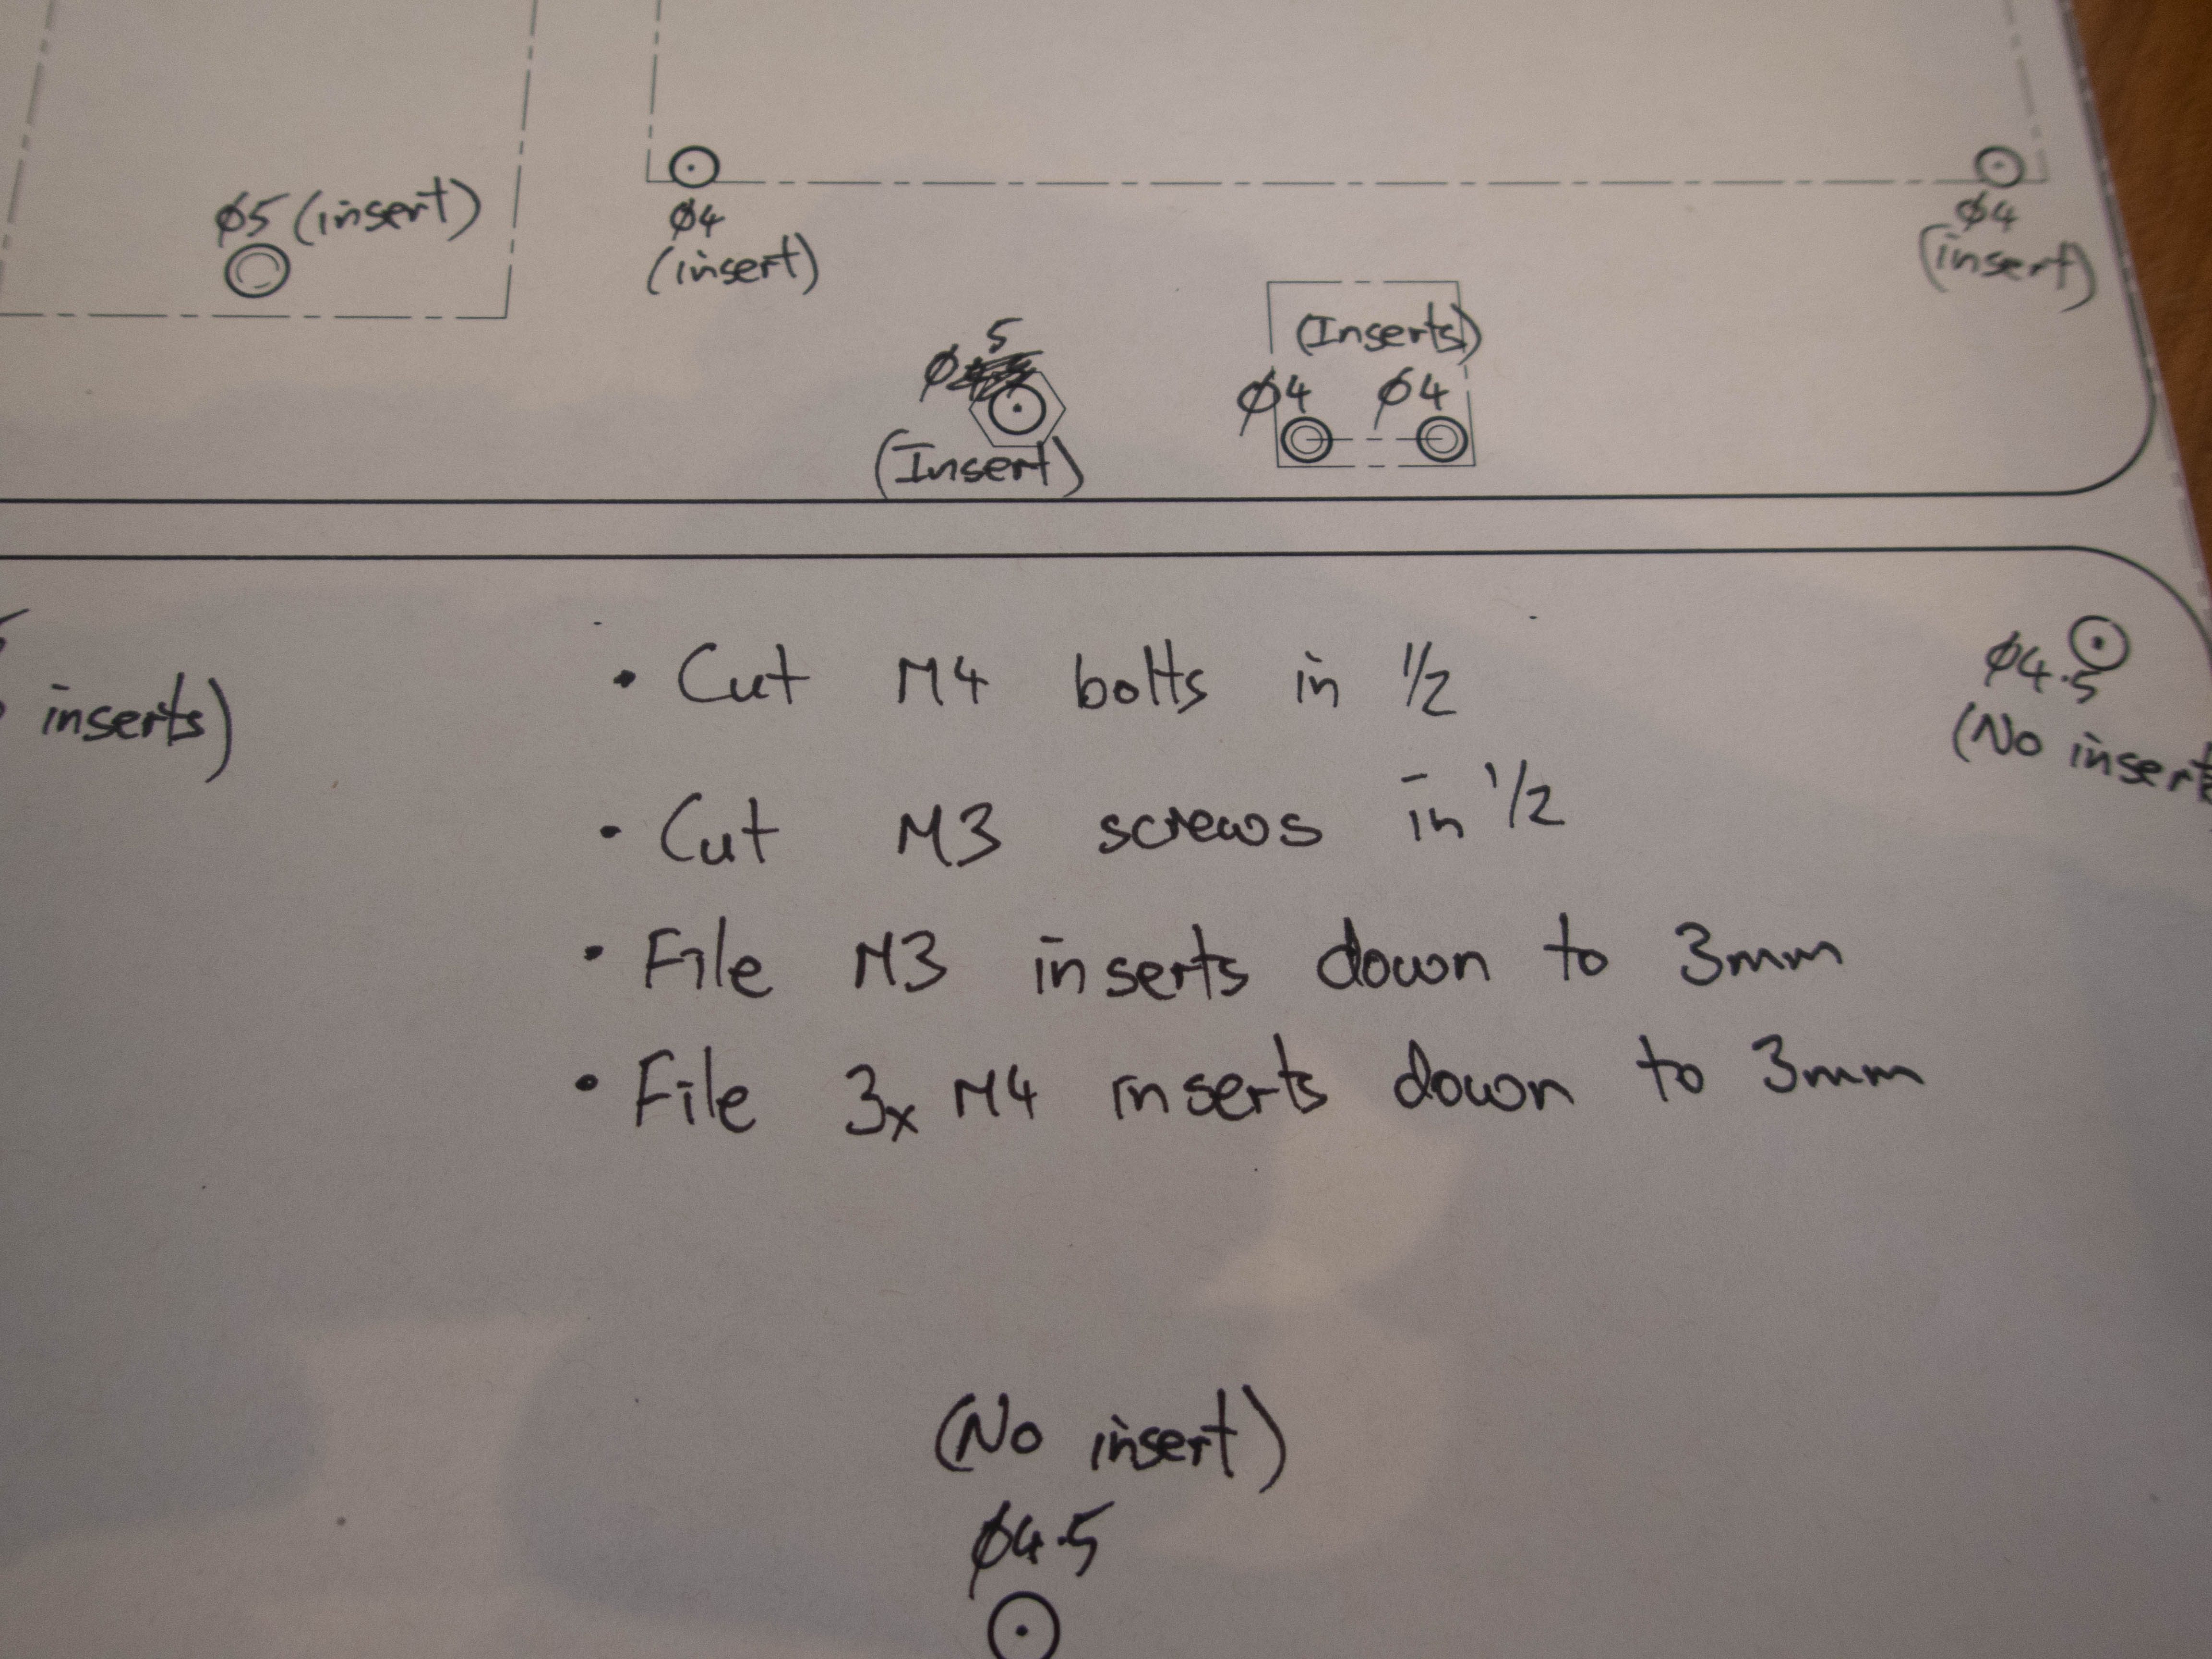 ø5 (insert)
ø4
(insert)
ø4
(insert)
5
ø
(Insert)
(Inserts)
ø4 ø4
inserts)
• Cut M4 bolts in 1/2
• Cut M3 screws in 1/2
• File M3 inserts down to 3mm
• File 3x M4 inserts down to 3mm
ø4.5
(No insert
(No insert)
ø4.5